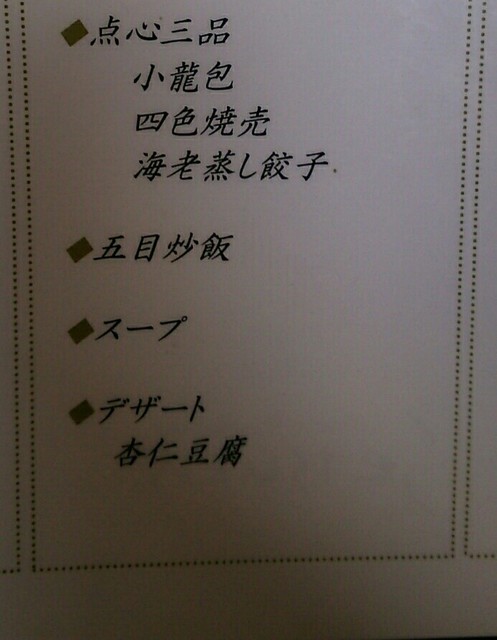 ◆点心三品
小龍包
四色焼売
海老蒸し餃子
◆五目炒飯
◆スープ
◆デザート
杏仁豆腐